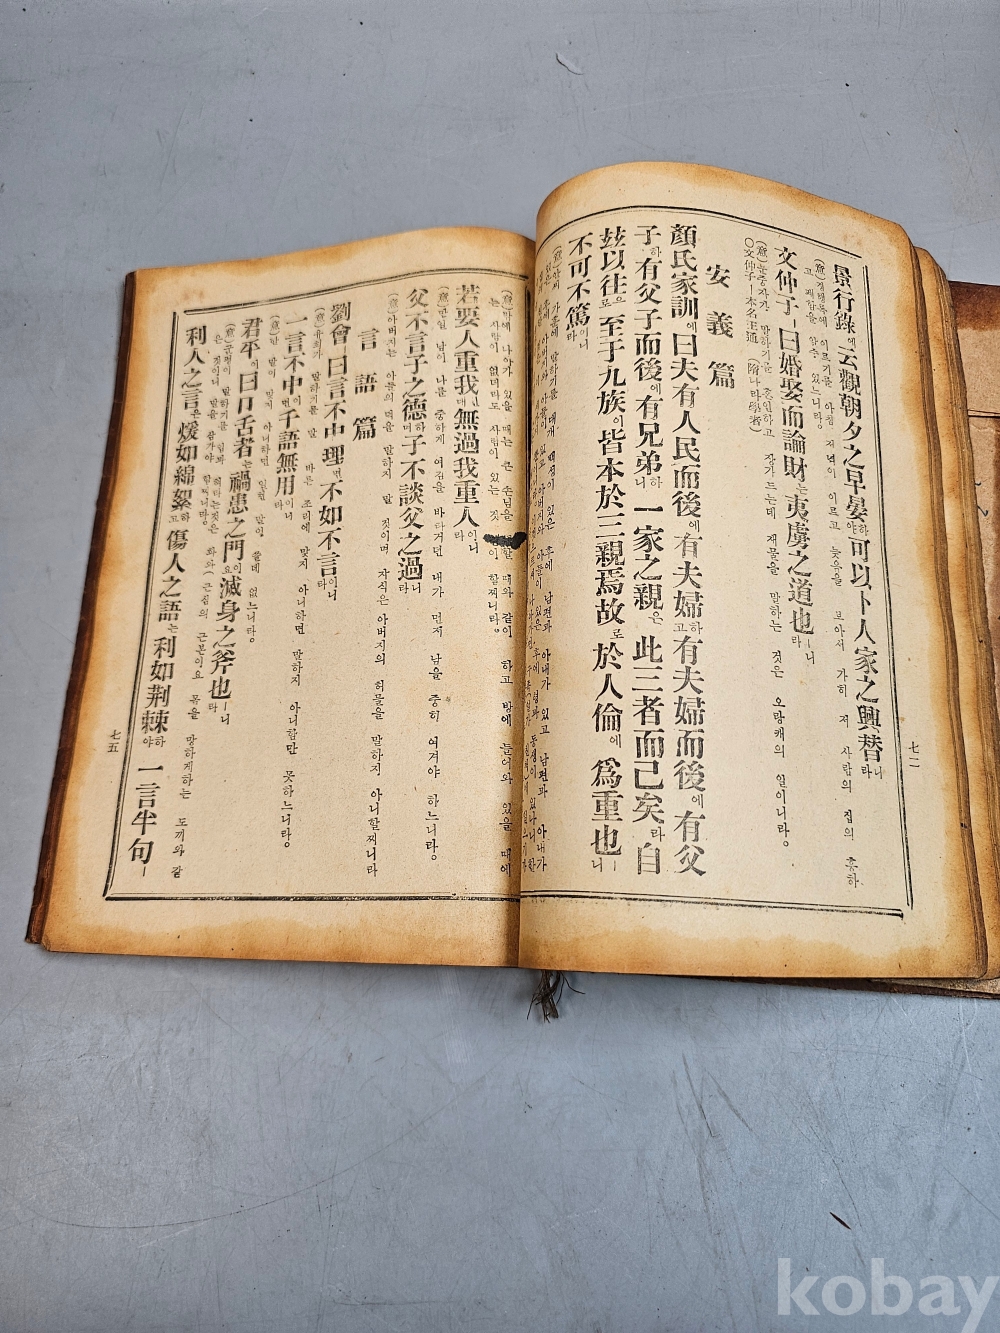 景行錄에云觀朝夕之早晏하야可以卜人家之興替니라
(意)경행록에 이르기를 아침 저녁이 이르고 늦음을 보아서 가히 저 사람의 집의 흥하
고 패함을 알수 있느니라。
文仲子ㅣ曰婚娶而論財는夷虜之道也ㅣ니라
(意)문중자가 말하기를 혼인하고 장가드는데 재물을 말하는 것은 오랑캐의 일이니라。
○文仲子ㅣ本名王通(隋나라學者)
安義篇
顏氏家訓에曰夫有人民而後에有夫婦하고有夫婦而後에有父
子하고有父子而後에有兄弟하니一家之親은此三者而已矣라自
玆以往으로至于九族이皆本於三親焉故로於人倫에爲重也ㅣ니
不可不篤이니라
七二
는 사람이 없더라도 사람이 있는 것
若要人重我인대無過我重人이니라
(意)만일 남이 나를 중하게 여김을 바라거던 내가 먼저 남을 중히 여겨야 하느니라。
父不言子之德하며子不談父之過니라
(意)아버지는 아들의 덕을 말하지 말 것이며 자식은 아버지의 허물을 말하지 아니할찌니라
言語篇
劉會ㅣ曰言不中理면不如不言이니라
(意)유회가 말하기를 말이 바른 조리에 맞지 아니하면 말하지 아니함만 못하느니라。
一言不中이면千語無用이니라
(意)한 말이 맞지 아니하면 일천 말이 쓸데 없느니라。
君平이曰口舌者는禍患之門이요滅身之斧也ㅣ니라
(意)군평이 말하기를 입과 혀라는것은 화와 근심의 근본이요 몸을 망하게하는 도끼와 같
은 것이니 말을 삼가야 할찌니라。
利人之言은煖如綿絮하고傷人之語는利如荊棘하야一言半句ㅣ
七五
kobay